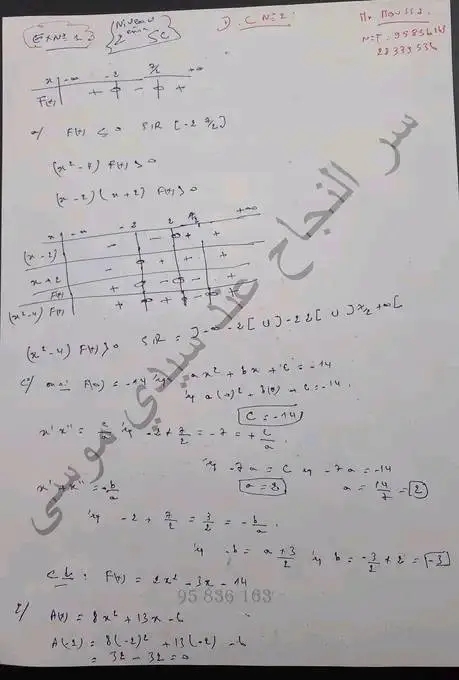 Ex N° 1
Niveau 2ème Sc
D. C N° 2.
Mr Moussa.
N°T. 95836163
x -∞ -2 7/2 +∞
F(x) + 0 - 0 +
a/ F(x) ≤ 0 SIR [-2 7/2]
(x² - 4) F(x) > 0
(x - 2)(x + 2) F(x) > 0
x -∞ -2 2 7/2 +∞
(x - 2) - - 0 + +
x + 2 - 0 + + +
F(x) + 0 - - 0 +
(x² - 4) F(x)
(x² - 4) F(x) > 0 SIR = ]-∞ -2[ U ]-2 2[ U ]7/2 +∞[
c/ on a: F(0) = -14 ax² + bx + c = -14
C = -14
x' x'' = c/a -2 × 7/2 = -7 = + c/a.
-7a = C -7a = -14
a = 2 a = 14/7 = 2
x' + x'' = -b/a
-2 + 7/2 = 3/2 = -b/a
-b = a × 3/2 b = -3/2 × 2 = -3
F(x) = 2x² - 3x - 14
95 836 163
2/ A(x) = 8x² + 13x - 6
A(-2) = 8(-2)² + 13(-2) - 6
= 32 - 32 = 0
سر النجاح عند سيدي موسى